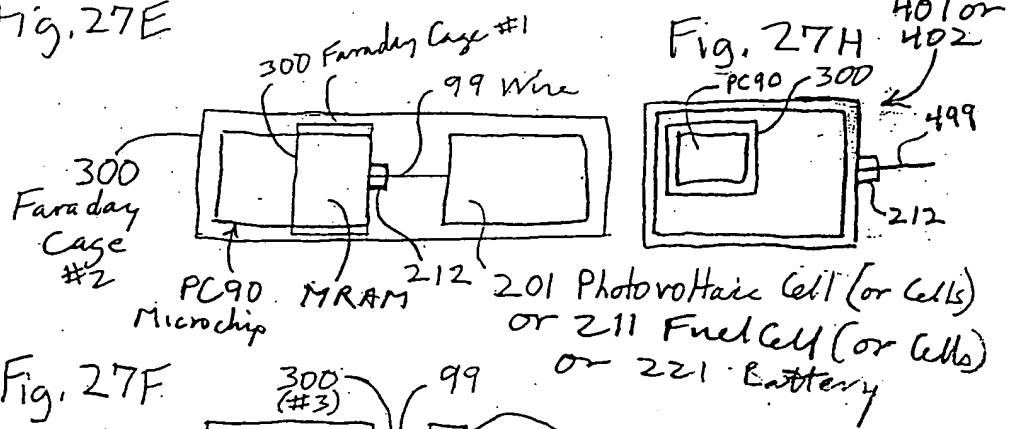 Fig. 27E
300 Faraday Cage #1
99 Wire
300
Faraday
Cage
#2
PC90
Microchip
MRAM
212
201 Photovoltaic Cell (or Cells)
or 211 Fuel Cell (or Cells)
or 221 Battery
Fig. 27H
401 or
402
PC90
300
499
212
Fig. 27F
300
(#3)
99